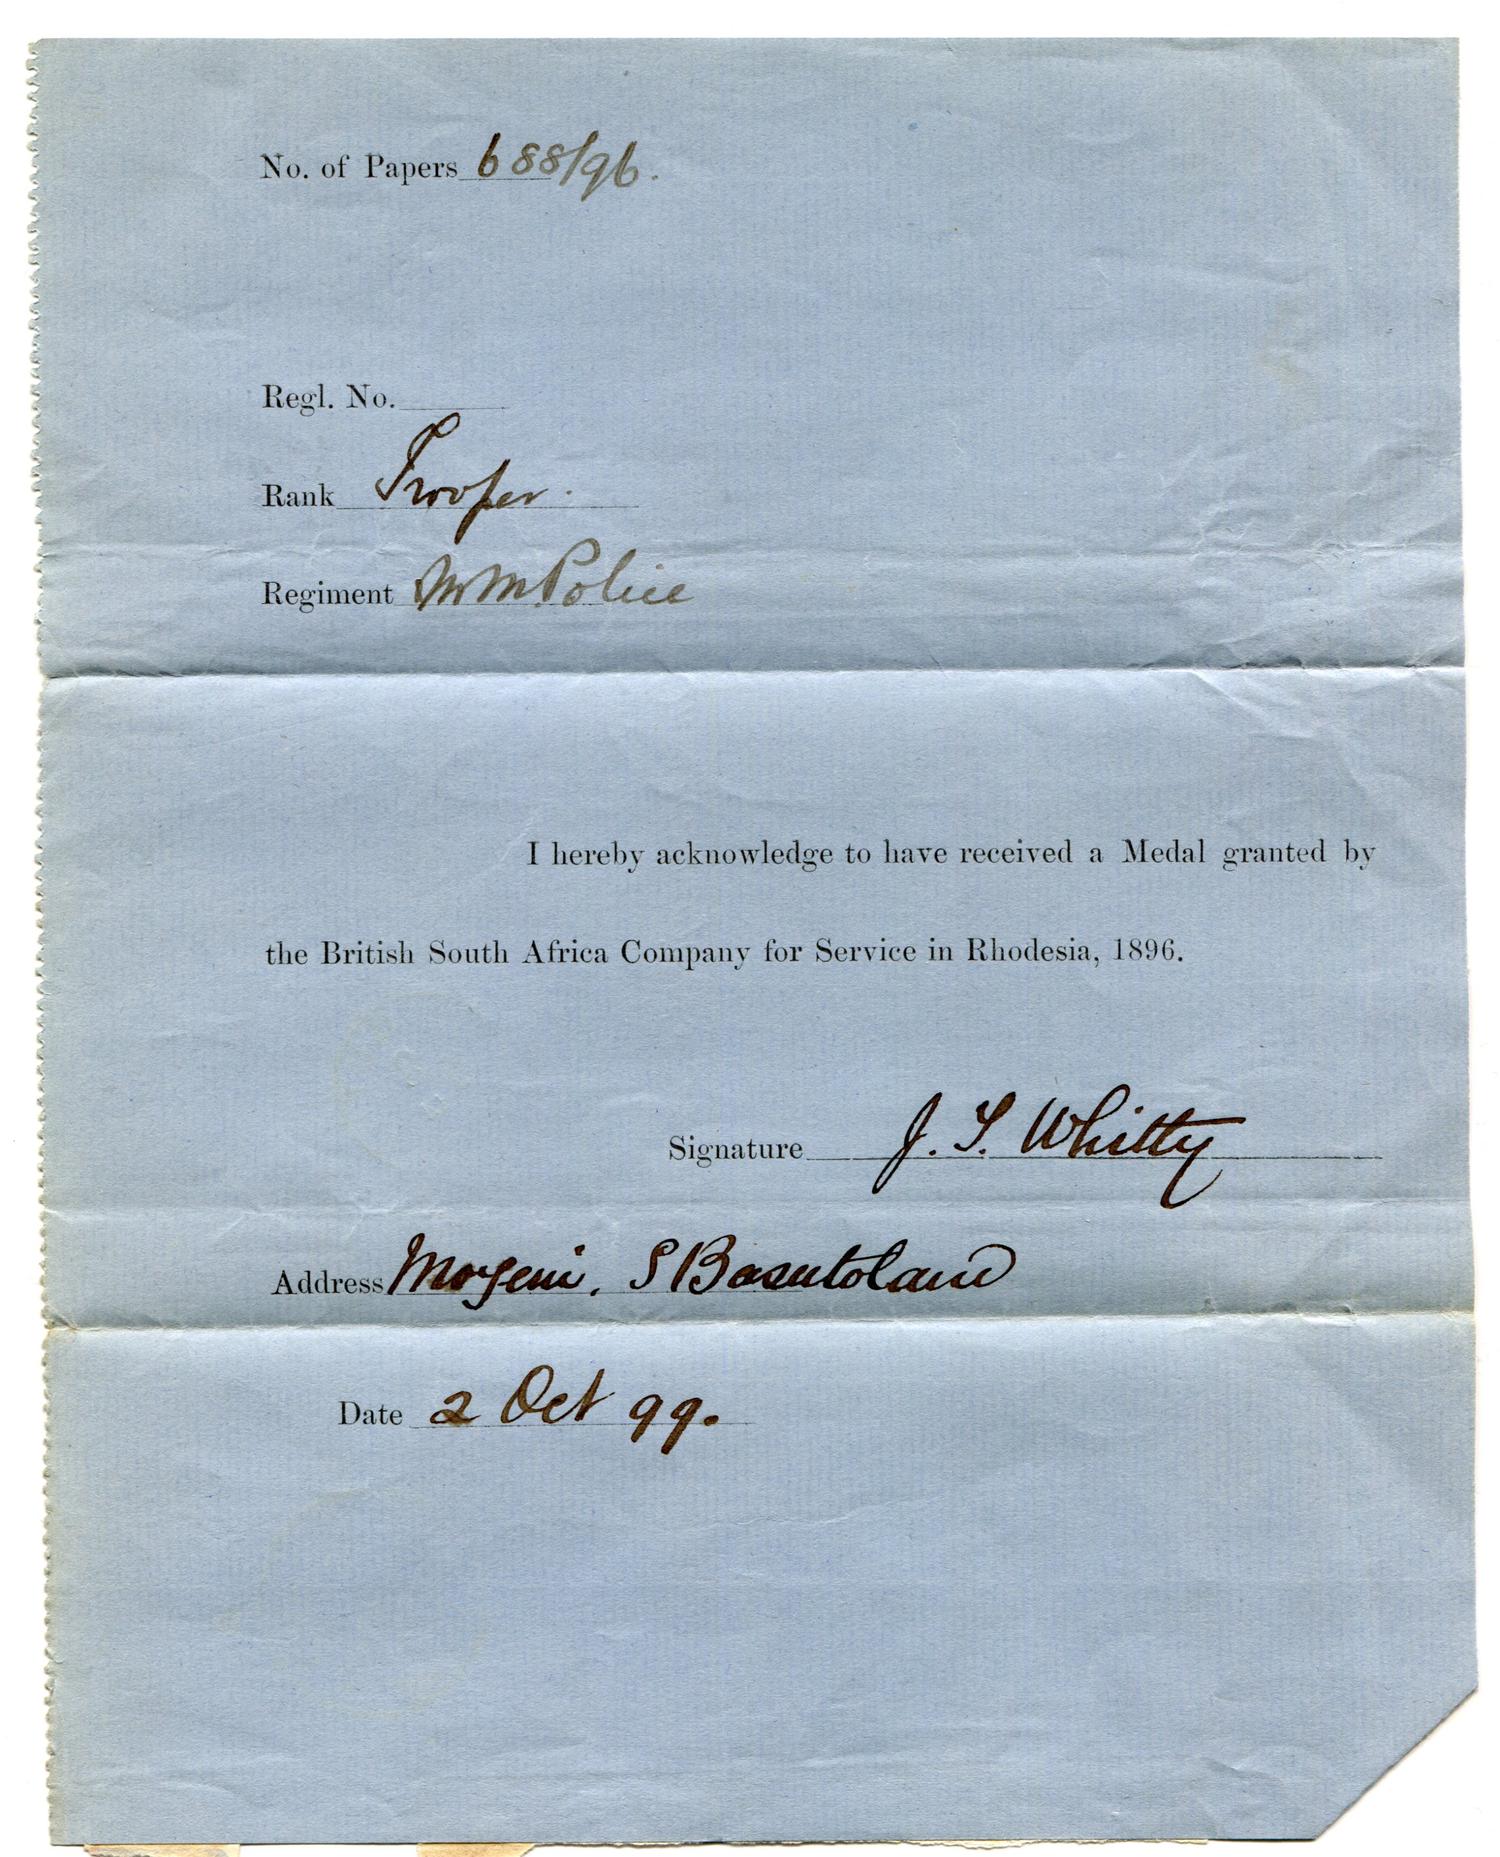 No. of Papers 688/96.
Regl. No.
Rank Trooper.
Regiment M M Police
I hereby acknowledge to have received a Medal granted by
the British South Africa Company for Service in Rhodesia, 1896.
Signature J. S. Whitty
Address Moyeni, S Basutoland
Date 2 Oct 99.